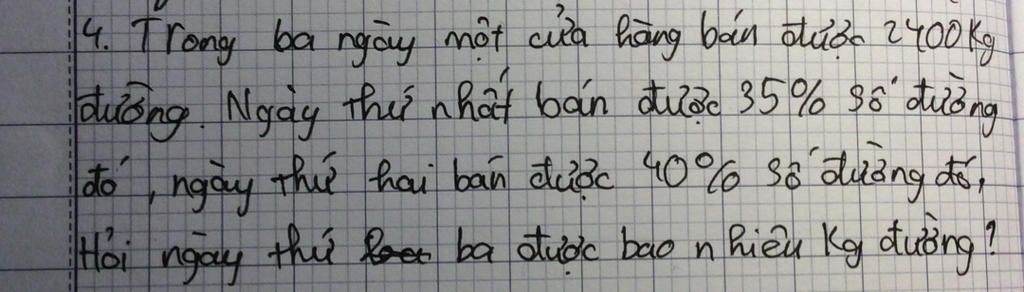 4. Trong ba ngày một cửa hàng bán được 2400kg
đường. Ngày thứ nhất bán được 35% số đường
đó, ngày thứ hai bán được 40% số đường đó,
Hỏi ngày thứ ba được bao nhiêu kg đường?